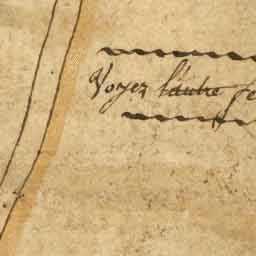 Voyez l'autre fe